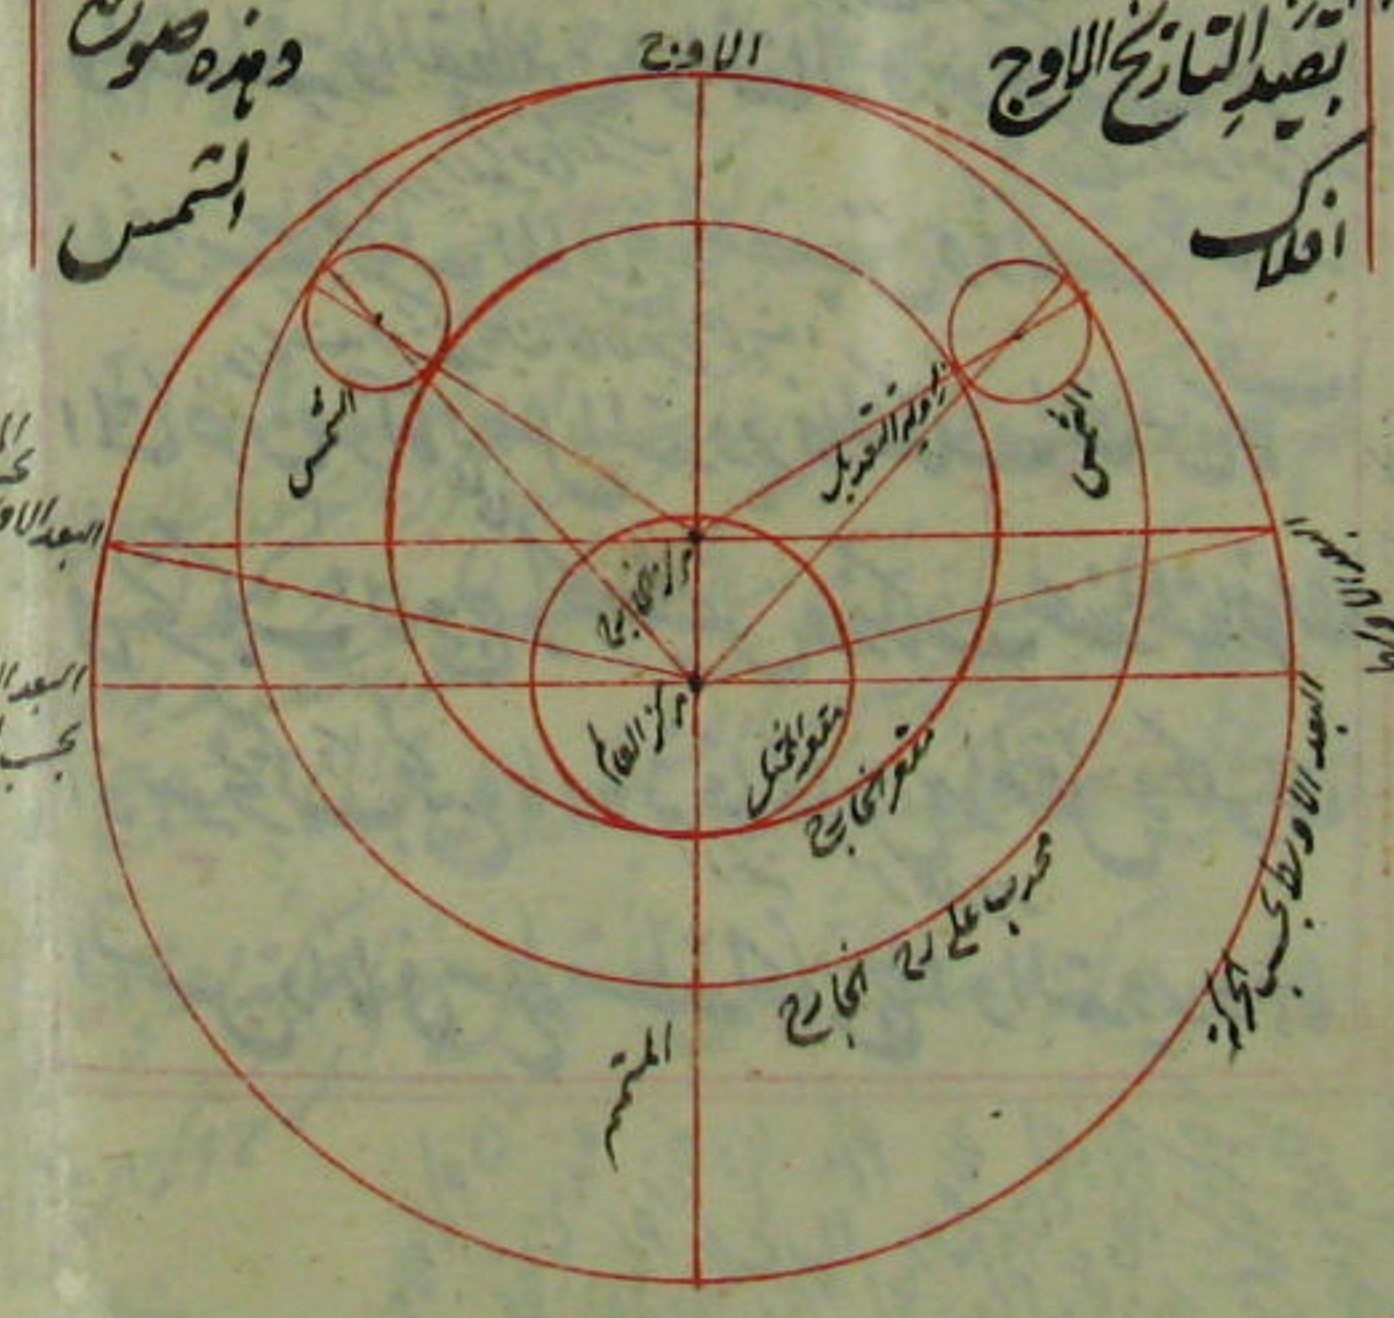 بقيد التاريخ الاوج
وهذه صورة
افلاك
الشمس
الاوج
الشمس
الشمس
زاوية التعديل
مركز الخارج
مركز العالم
مقعر الممثل
مقعر الخارج
محدب
الخارج
الممثل
البعد الاوسط
البعد الاوسط بحسب الحركة
البعد
البعد